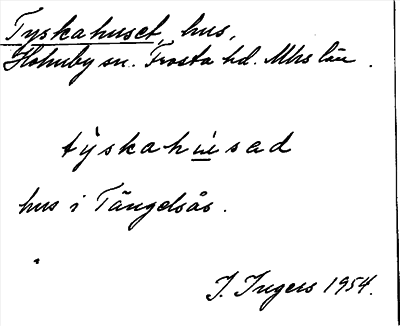 Tyskahuset, hus,
Holmby sn. Frosta hd. Mhs län.
tỳskahu̇́sad
hus i Tängelsås.
J. Ingers 1954.